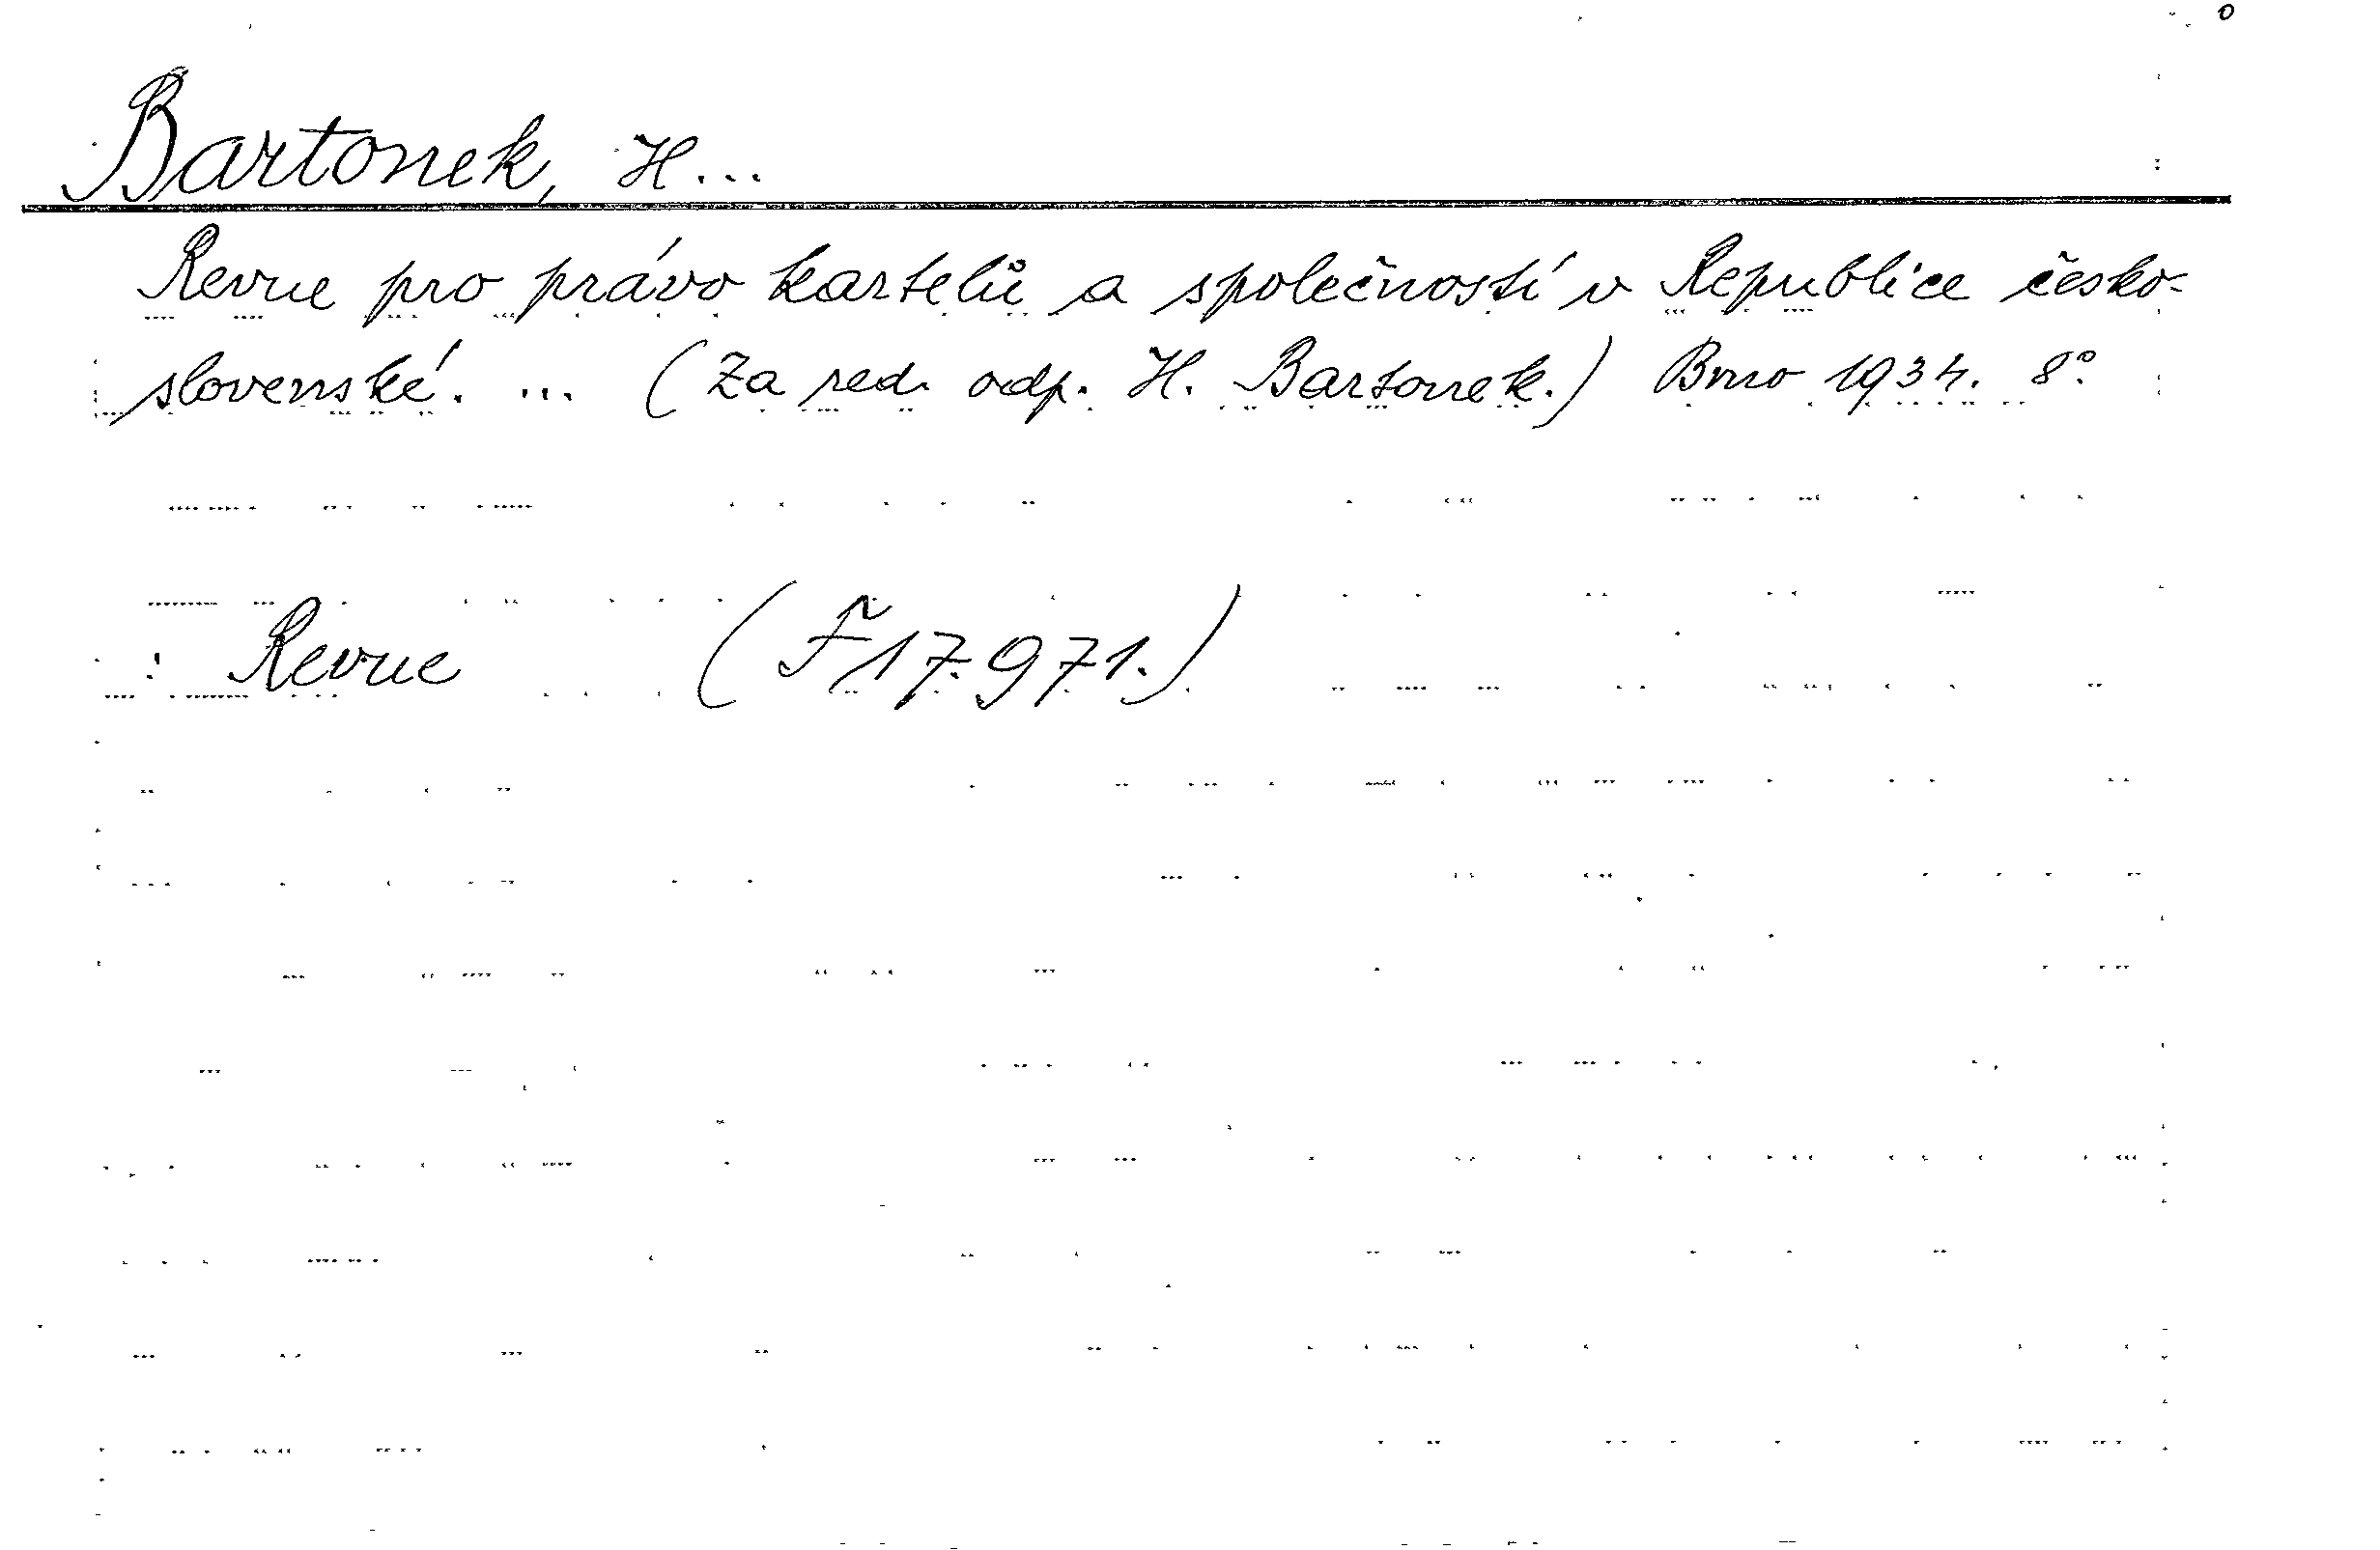 Bartonek, H...
Revue pro právo kartelů a společností v Republice česko-
slovenské. ... (Za red. odp. H. Bartonek.) Brno 1934. 8°.
: Revue (F̌ 17.971.)